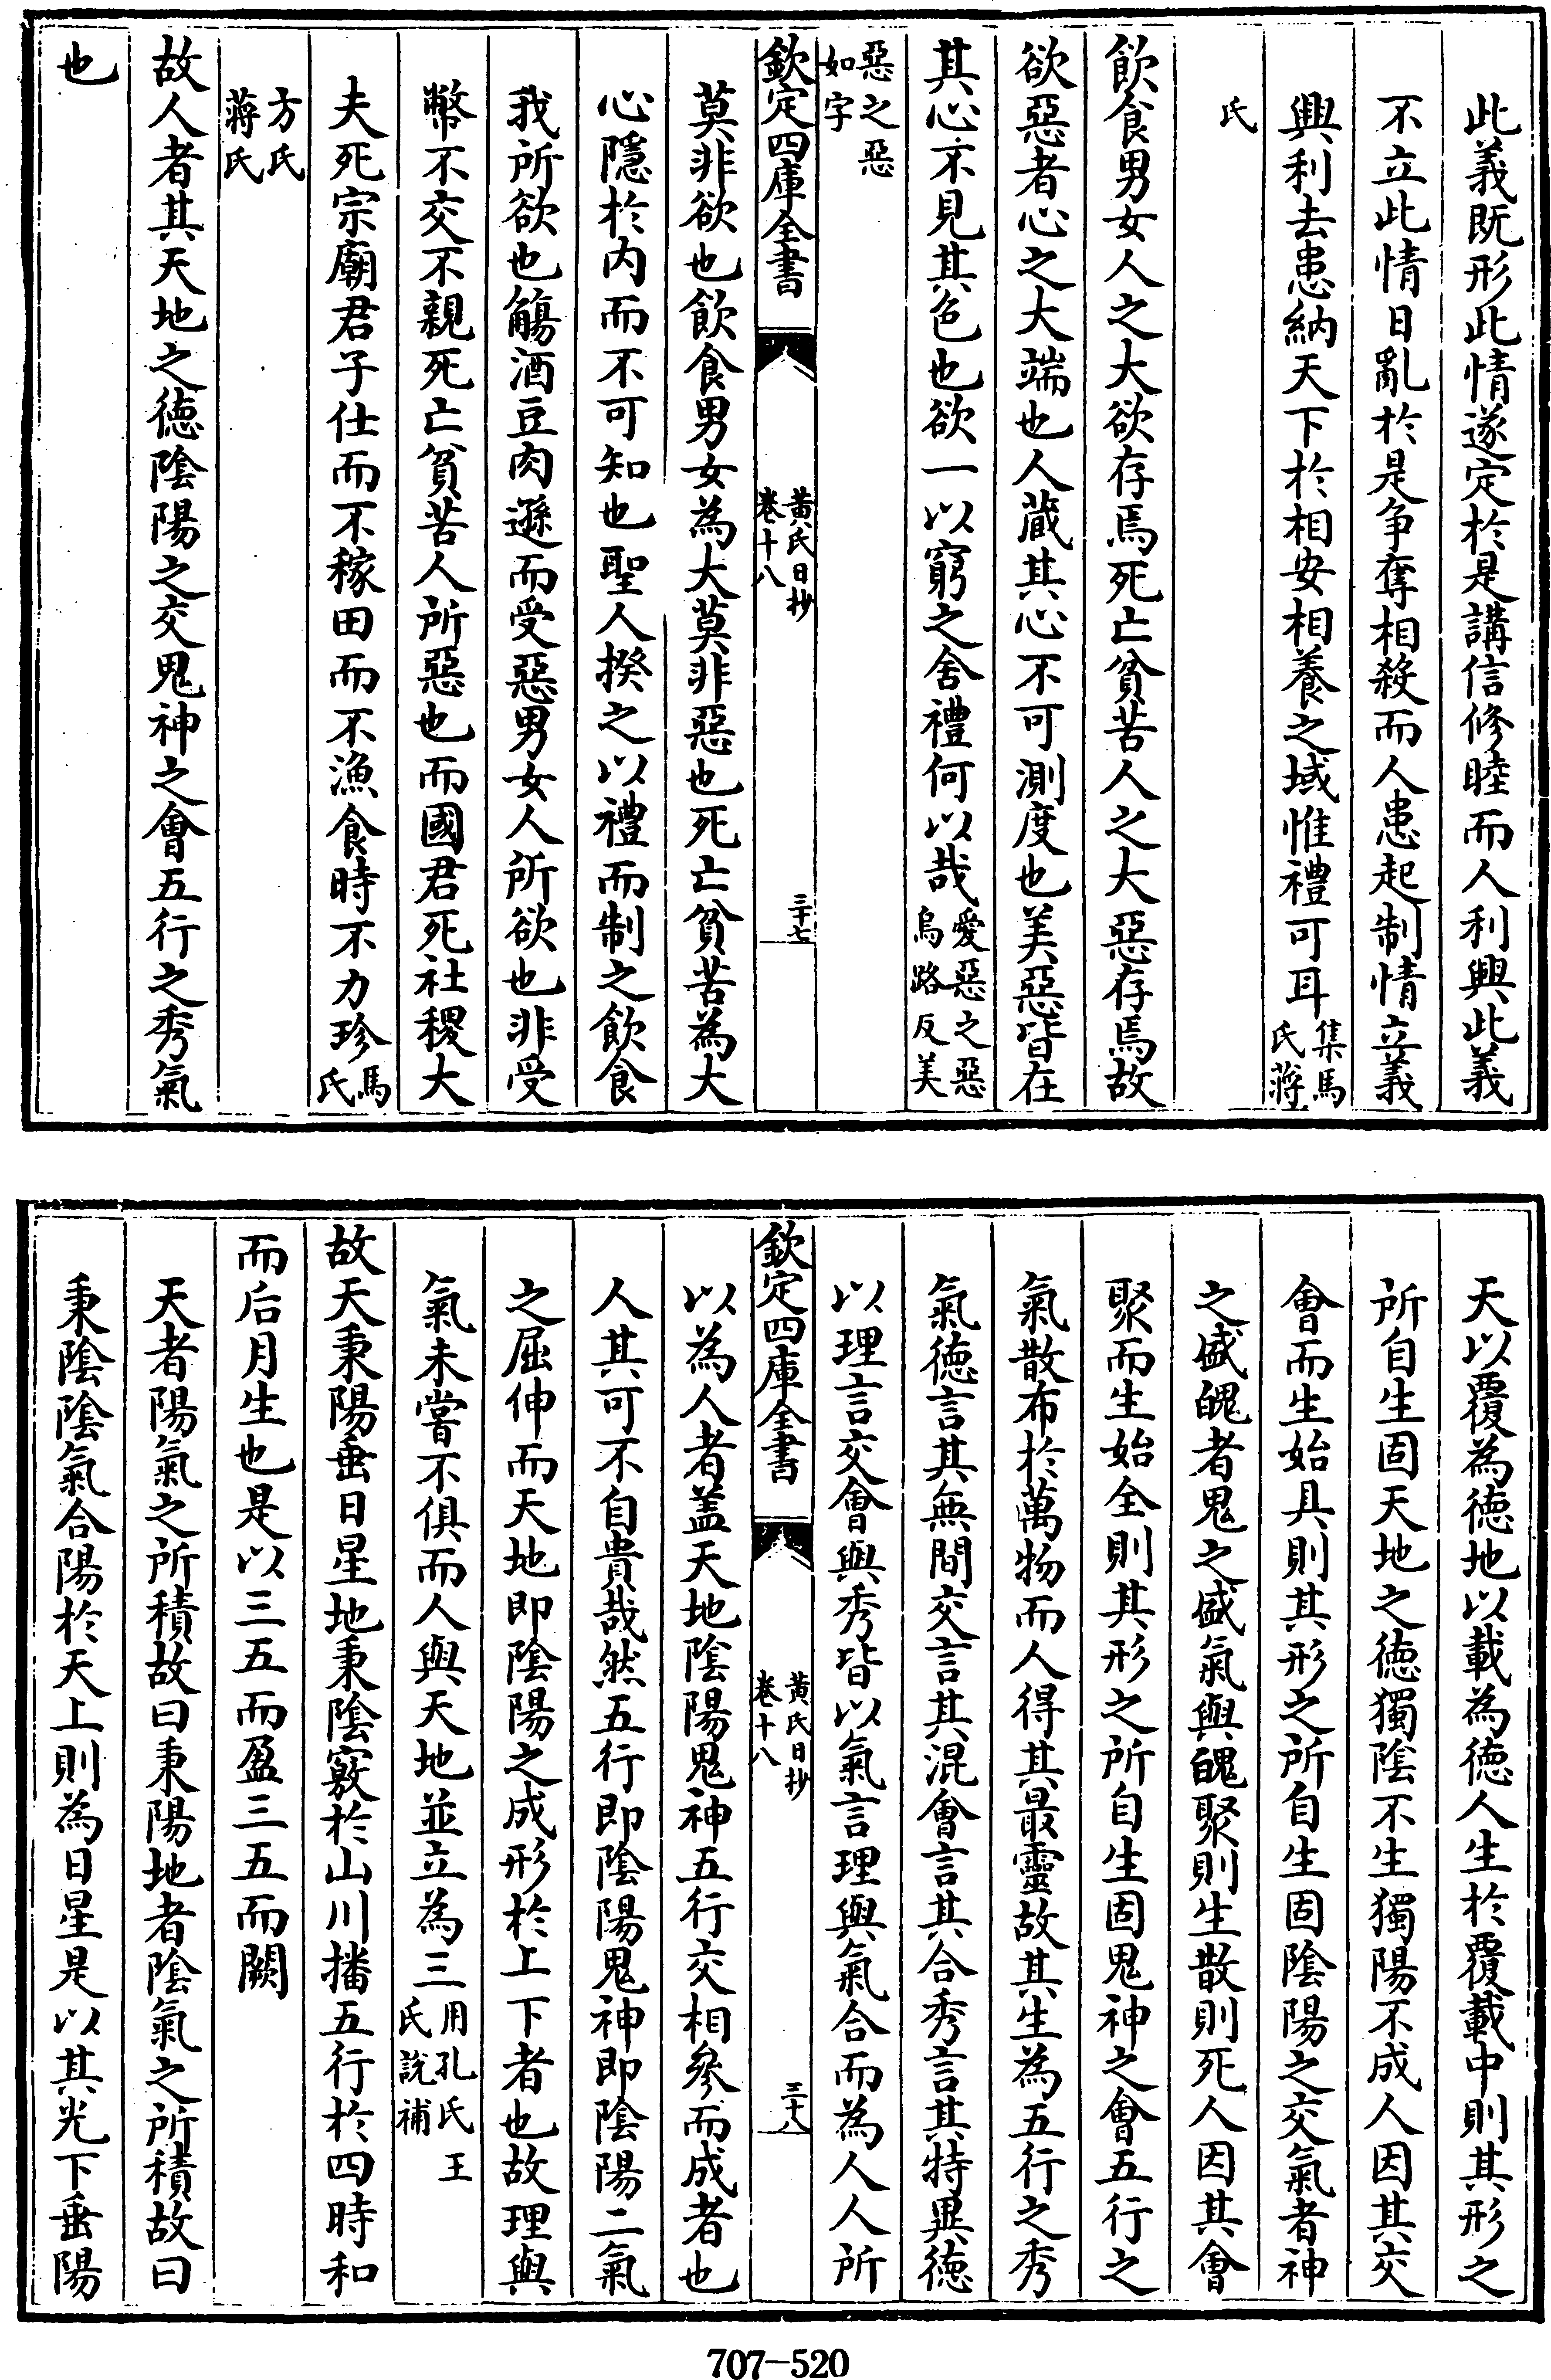 此義既形此情遂定於是講信修睦而人利興此義
不立此情日亂於是争奪相殺而人患起制情立義
興利去患納天下於相安相養之域惟禮可耳集馬氏蔣
氏
飲食男女人之大欲存焉死亡貧苦人之大惡存焉故
欲惡者心之大端也人藏其心不可測度也美惡皆在
其心不見其色也欲一以窮之舍禮何以哉愛惡之惡烏路反美
惡之惡如字
欽定四庫全書 黃氏日抄卷十八 三十七
莫非欲也飲食男女為大莫非惡也死亡貧苦為大
心隱於内而不可知也聖人揆之以禮而制之飲食
我所欲也觴酒豆肉遜而受惡男女人所欲也非受
幣不交不親死亡貧苦人所惡也而國君死社稷大
夫死宗廟君子仕而不稼田而不漁食時不力珍馬氏
方氏蔣氏
故人者其天地之德陰陽之交鬼神之會五行之秀氣
也
天以覆為德地以載為德人生於覆載中則其形之
所自生固天地之德獨陰不生獨陽不成人因其交
會而生始具則其形之所自生固陰陽之交氣者神
之盛魄者鬼之盛氣與魄聚則生散則死人因其會
聚而生始全則其形之所自生固鬼神之會五行之
氣散布於萬物而人得其最靈故其生為五行之秀
氣德言其無間交言其混會言其合秀言其特異德
以理言交會與秀皆以氣言理與氣合而為人人所
欽定四庫全書 黃氏日抄卷十八 三十八
以為人者盖天地陰陽鬼神五行交相參而成者也
人其可不自貴哉然五行即陰陽鬼神即陰陽二氣
之屈伸而天地即陰陽之成形於上下者也故理與
氣未嘗不俱而人與天地並立為三用孔氏王氏說補
故天秉陽垂日星地秉陰竅於山川播五行於四時和
而后月生也是以三五而盈三五而闕
天者陽氣之所積故曰秉陽地者陰氣之所積故曰
秉陰陰氣合陽於天上則為日星是以其光下垂陽
707-520